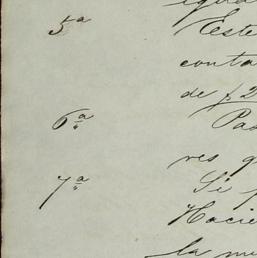 5ª Este
conta
de f. 2
6ª Pas
res q
7ª Si f
Hacie
la m